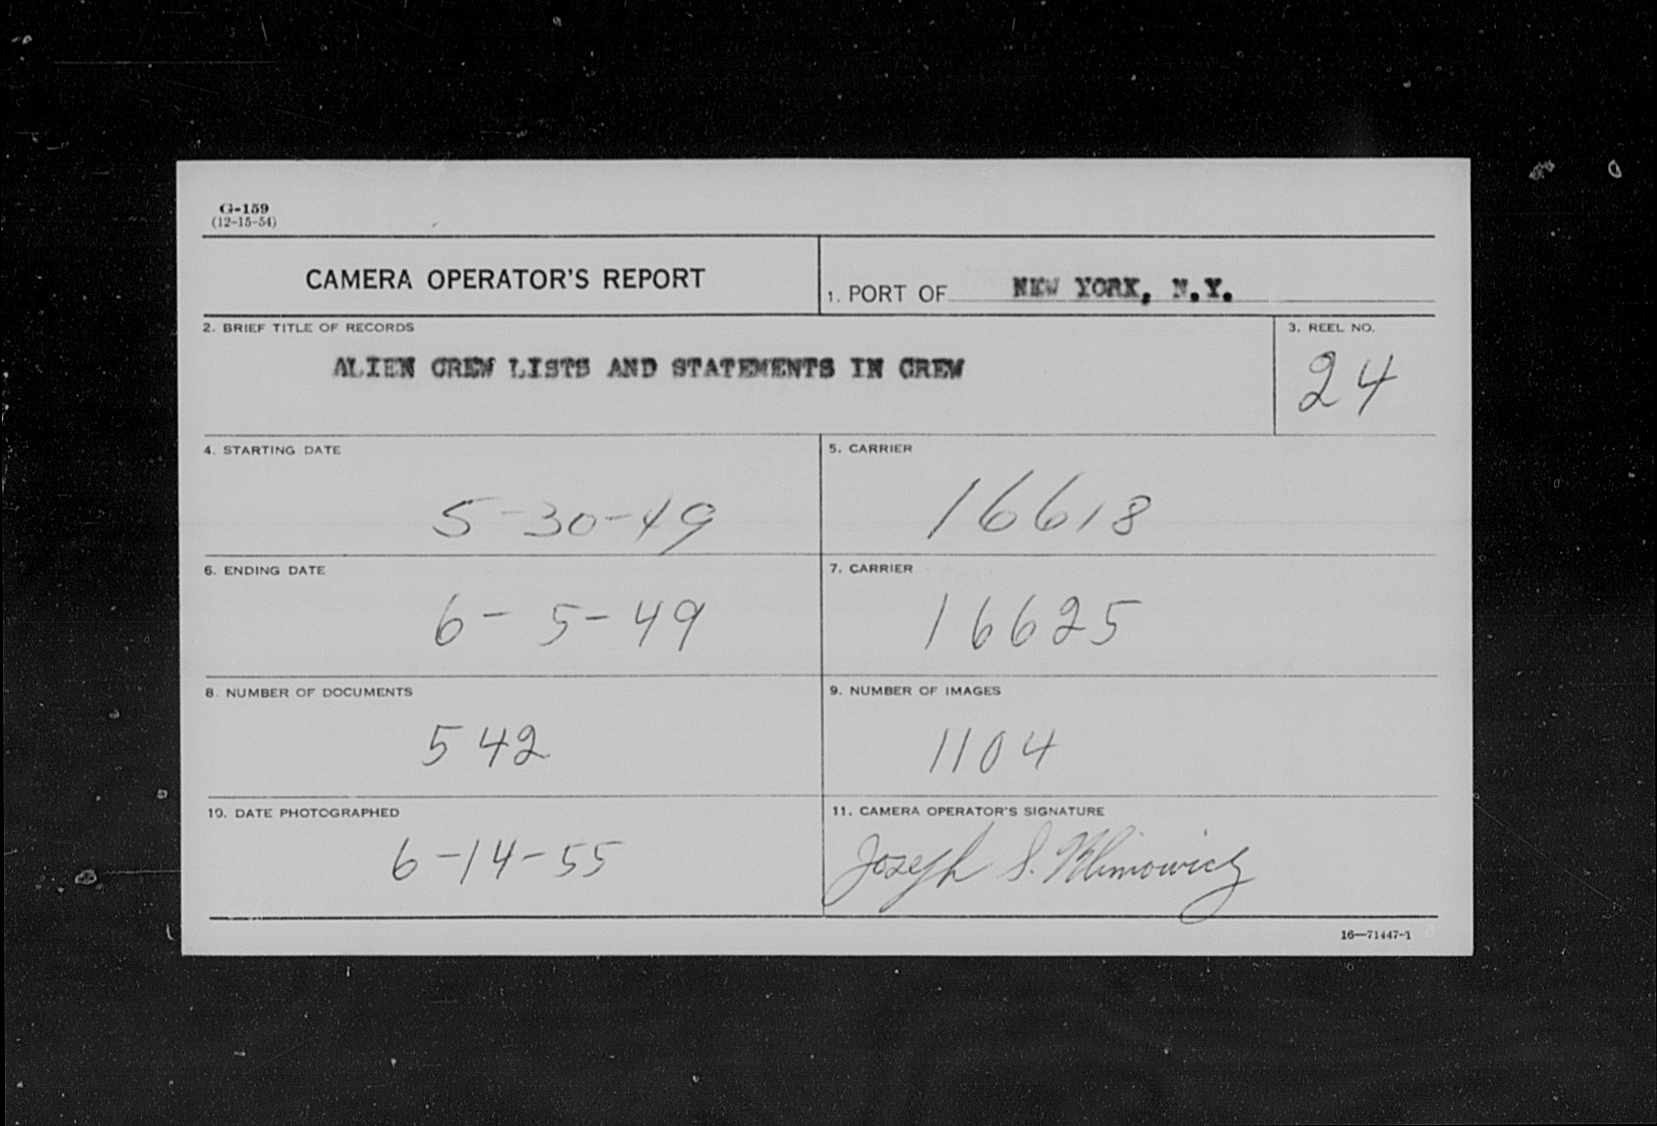 G-159
(12-15-54)
CAMERA OPERATOR'S REPORT
1. PORT OF NEW YORK, N.Y.
2. BRIEF TITLE OF RECORDS
ALIEN CREW LISTS AND STATEMENTS IN CREW
3. REEL NO.
24
4. STARTING DATE
5-30-49
5. CARRIER
16618
6. ENDING DATE
6-5-49
7. CARRIER
16625
8. NUMBER OF DOCUMENTS
542
9. NUMBER OF IMAGES
1104
10. DATE PHOTOGRAPHED
6-14-55
11. CAMERA OPERATOR'S SIGNATURE
Joseph S.
16—71447-1